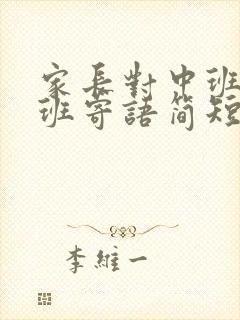 家長對中班
班寄語簡短
李維一